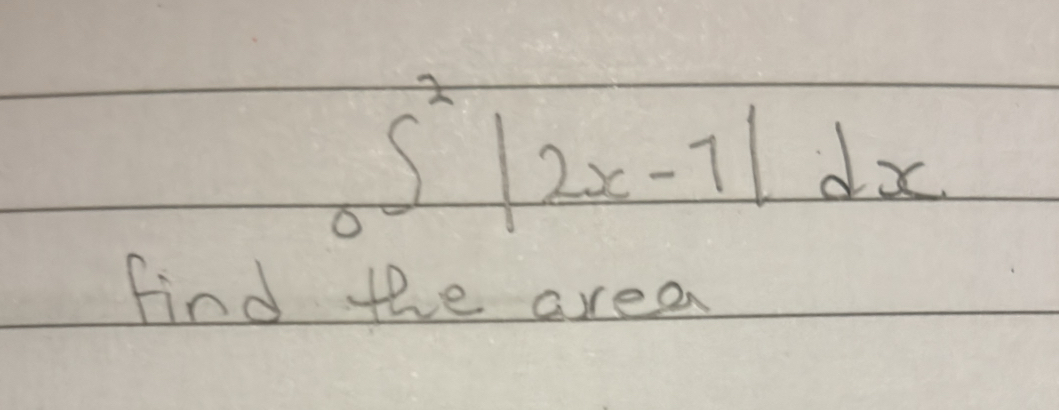 ₀∫² |2x-1| dx
find the area